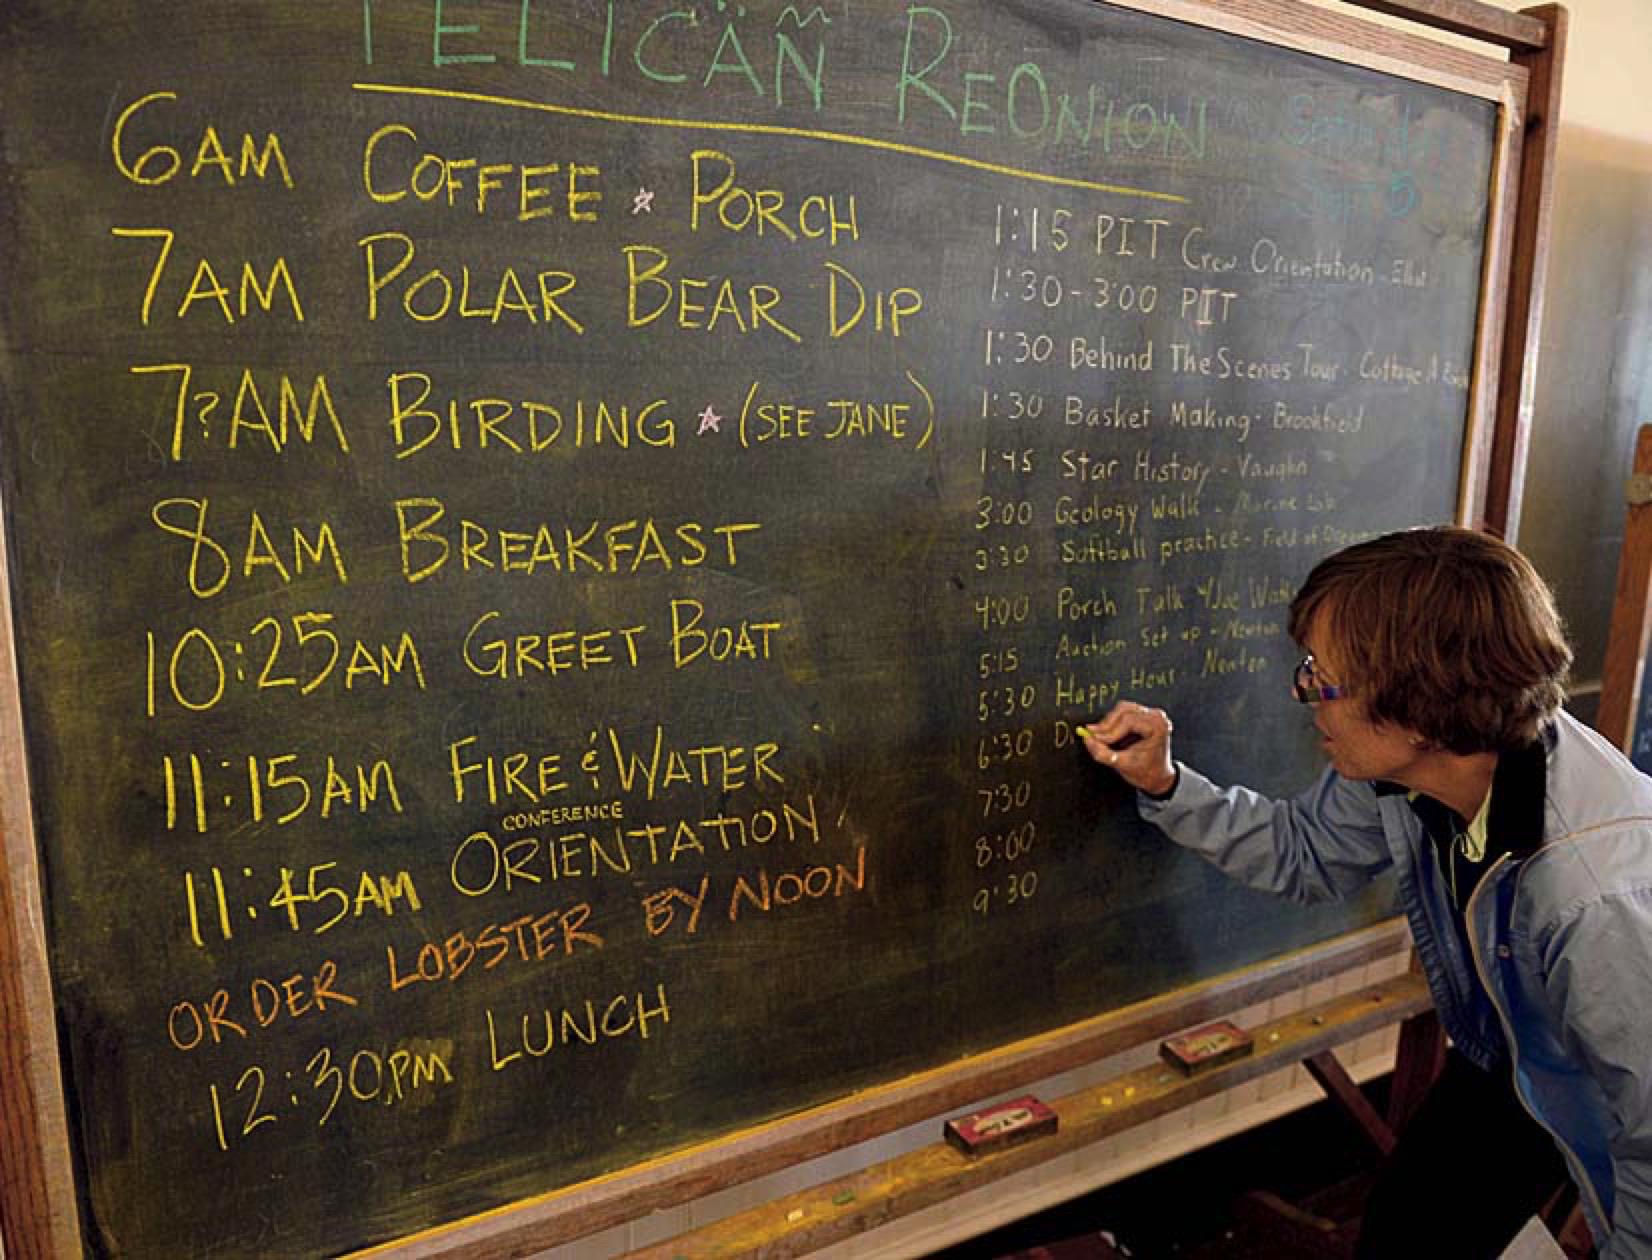 PELICAN REONION
6AM COFFEE ☆ PORCH
7AM POLAR BEAR DIP
7?AM BIRDING ☆ (SEE JANE)
8AM BREAKFAST
10:25AM GREET BOAT
11:15AM FIRE & WATER
11:45AM CONFERENCE ORIENTATION
ORDER LOBSTER BY NOON
12:30PM LUNCH
1:15 PIT Crew Orientation - Elliot
1:30-3:00 PIT
1:30 Behind The Scenes Tour - Cottage A
1:30 Basket Making - Brookfield
1:45 Star History - Vaughn
3:00 Geology Walk - Marine Lab
3:30 Softball practice - Field of
4:00 Porch Talk w/Joe
5:15 Auction Set up - Newton
5:30 Happy Hour - Newton
6:30 Di
7:30
8:00
9:30